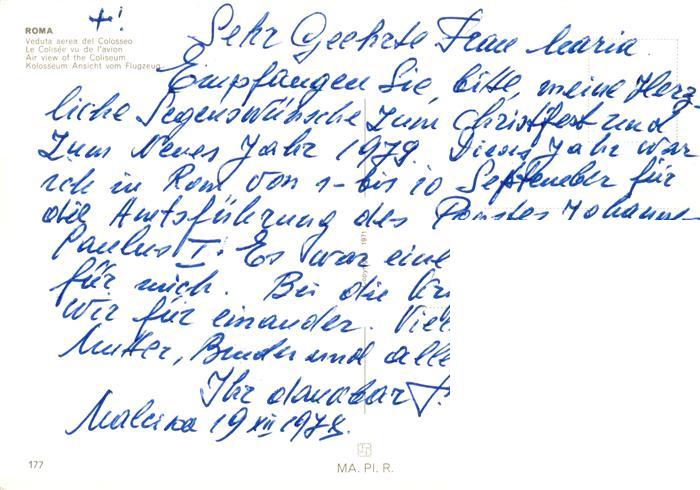 ROMA
Veduta aerea del Colosseo
Le Colisée vu de l'avion
Air view of the Coliseum
Kolosseum Ansicht vom Flugzeug
+!
Sehr Geehrte Frau Maria.
Empfangen Sie bitte, meine Herz-
liche Segenswünsche zum Christfest und
zum Neues Jahr 1979. Dieses Jahr war
ich in Rom von 1-bis 10 September für
die Amtsführung des Papstes Johannes
Paulus I. Es war eine
für mich. Bei die
wir für einander. Viel
Mutter, Bruder und alle
Ihr dankbar
19 XII 1978.
177
MA. PI. R.